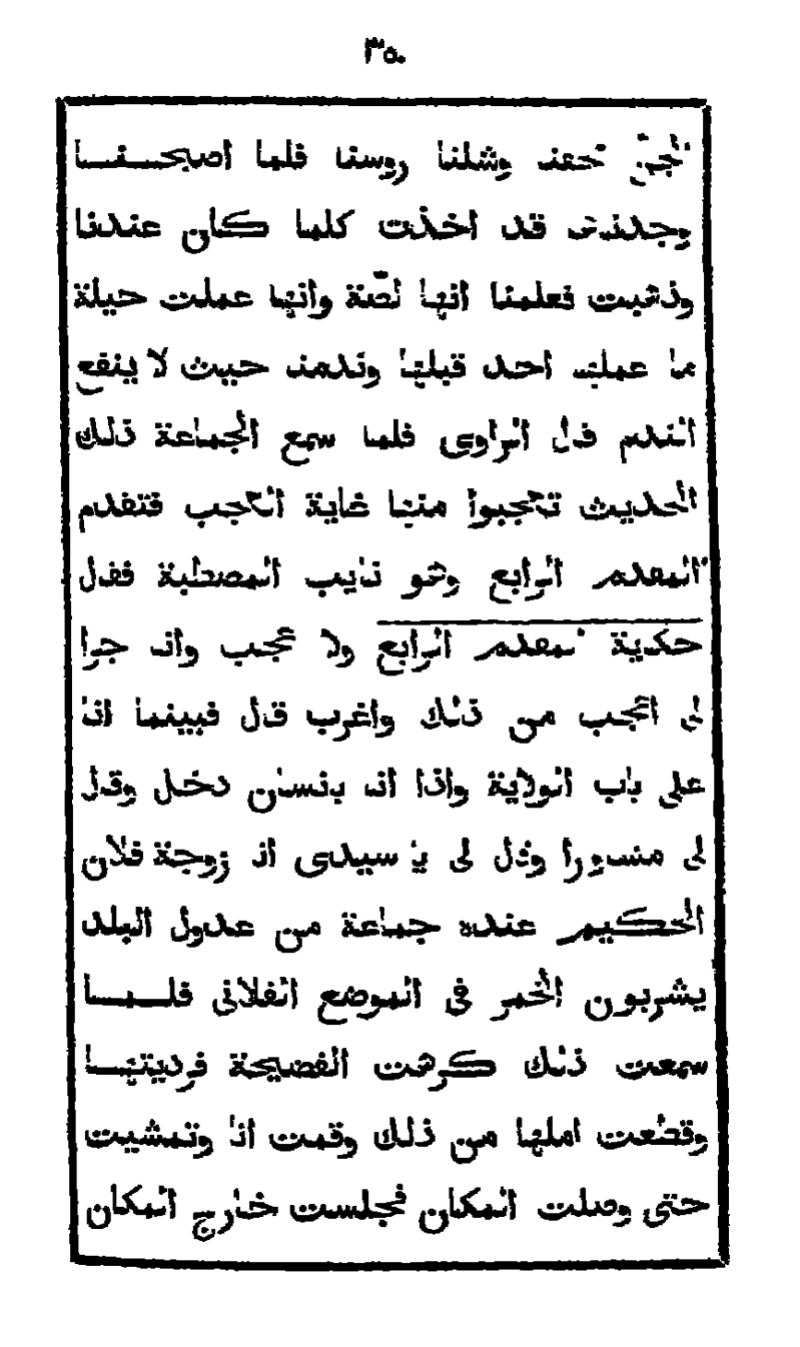 ٣٥٠
الجن خفنا وشلنا روسنا فلما اصبحنا
وجدناها قد اخذت كلما كان عندنا
وذهبت فعلمنا انها لصّة وانها عملت حيلة
ما عملها احد قبلها وندمنا حيث لا ينفع
الندم قال الراوى فلما سمع الجماعة ذلك
الحديث تعجبوا منها غاية العجب فتقدم
المقدم الرابع وهو نايب المصطبة فقال
حكاية المقدم الرابع ولا عجب وانه جرا
لى اعجب من ذلك واغرب قال فبينما انا
على باب الولاية واذا انا بانسان دخل وقال
لى منسورا وقال لى يا سيدى ان زوجة فلان
الحكيم عنده جماعة من عدول البلد
يشربون الخمر فى الموضع الفلانى فلما
سمعت ذلك كرهت الفضيحة فرديتها
وقطعت املها من ذلك وقمت انا وتمشيت
حتى وصلت المكان فجلست خارج المكان